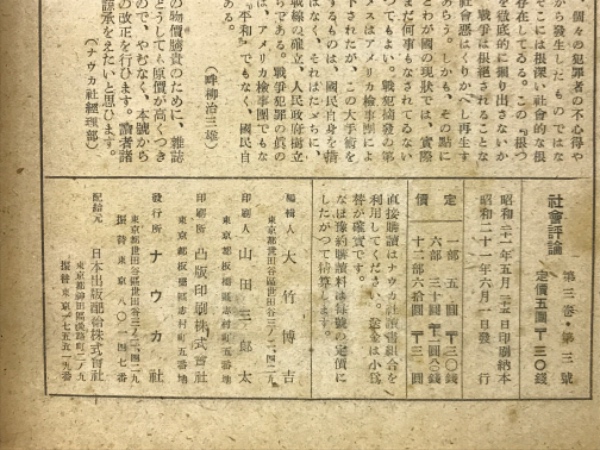 、個々の犯罪者の不心得や
から發生したものではな
そこには根深い社會的な根
存在してゐる。この『根つ
を徹底的に掘り出さないか
戰爭は根絶されることな
社會惡はくりかへし再生す
あらう。しかも、その點に
とわが國の現狀では、實際
まだ何事もなされてゐない
つてもよい。戰犯摘發の第
メスはアメリカ檢事團によ
下されたが、この大手術を
するものは、國民自身を措
はなく、それはたゞちに、
戰線の確立、人民政府樹立
らである。戰爭犯罪の眞の
は、アメリカ檢事團でもな
『平和』でもなく、國民自
ある。
（畔柳治三雄）
の物價騰貴のために、雜誌
どうしても原價が高くつき
ので、やむなく、本號から
の改正を行ひます。讀者諸
諒承をえたいと思ひます。
（ナウカ社經理部）
社會評論 第三卷・第三號
定價五圓〒三〇錢
昭和二十一年五月二十五日印刷納本
昭和二十一年六月一日發行
定價
一部 五圓 〒三〇錢
六部 三十圓 〒一圓八〇錢
十二部六拾圓 〒三圓
直接購讀はナウカ社讀書組合を
利用してください。送金は小爲
替が確實です。
なほ豫約購讀料は毎號の定價に
したがつて精算します。
編輯人 大竹博吉
東京都世田谷區世田谷三ノ二、四二九
印刷人 山田三郎太
東京都板橋區志村町五番地
印刷所 凸版印刷株式會社
東京都板橋區志村町五番地
發行所 ナウカ社
東京都世田谷區世田谷三ノ二、四二九
振替東京八〇一四七番
配給元 日本出版配給株式會社
東京都神田區淡路町二ノ九
振替東京一七五五一九番